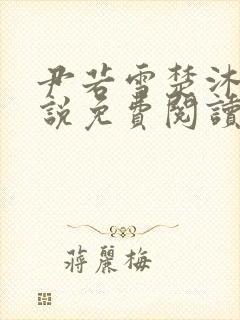 尹若雪楚沐
說免費閱讀
蔣麗梅